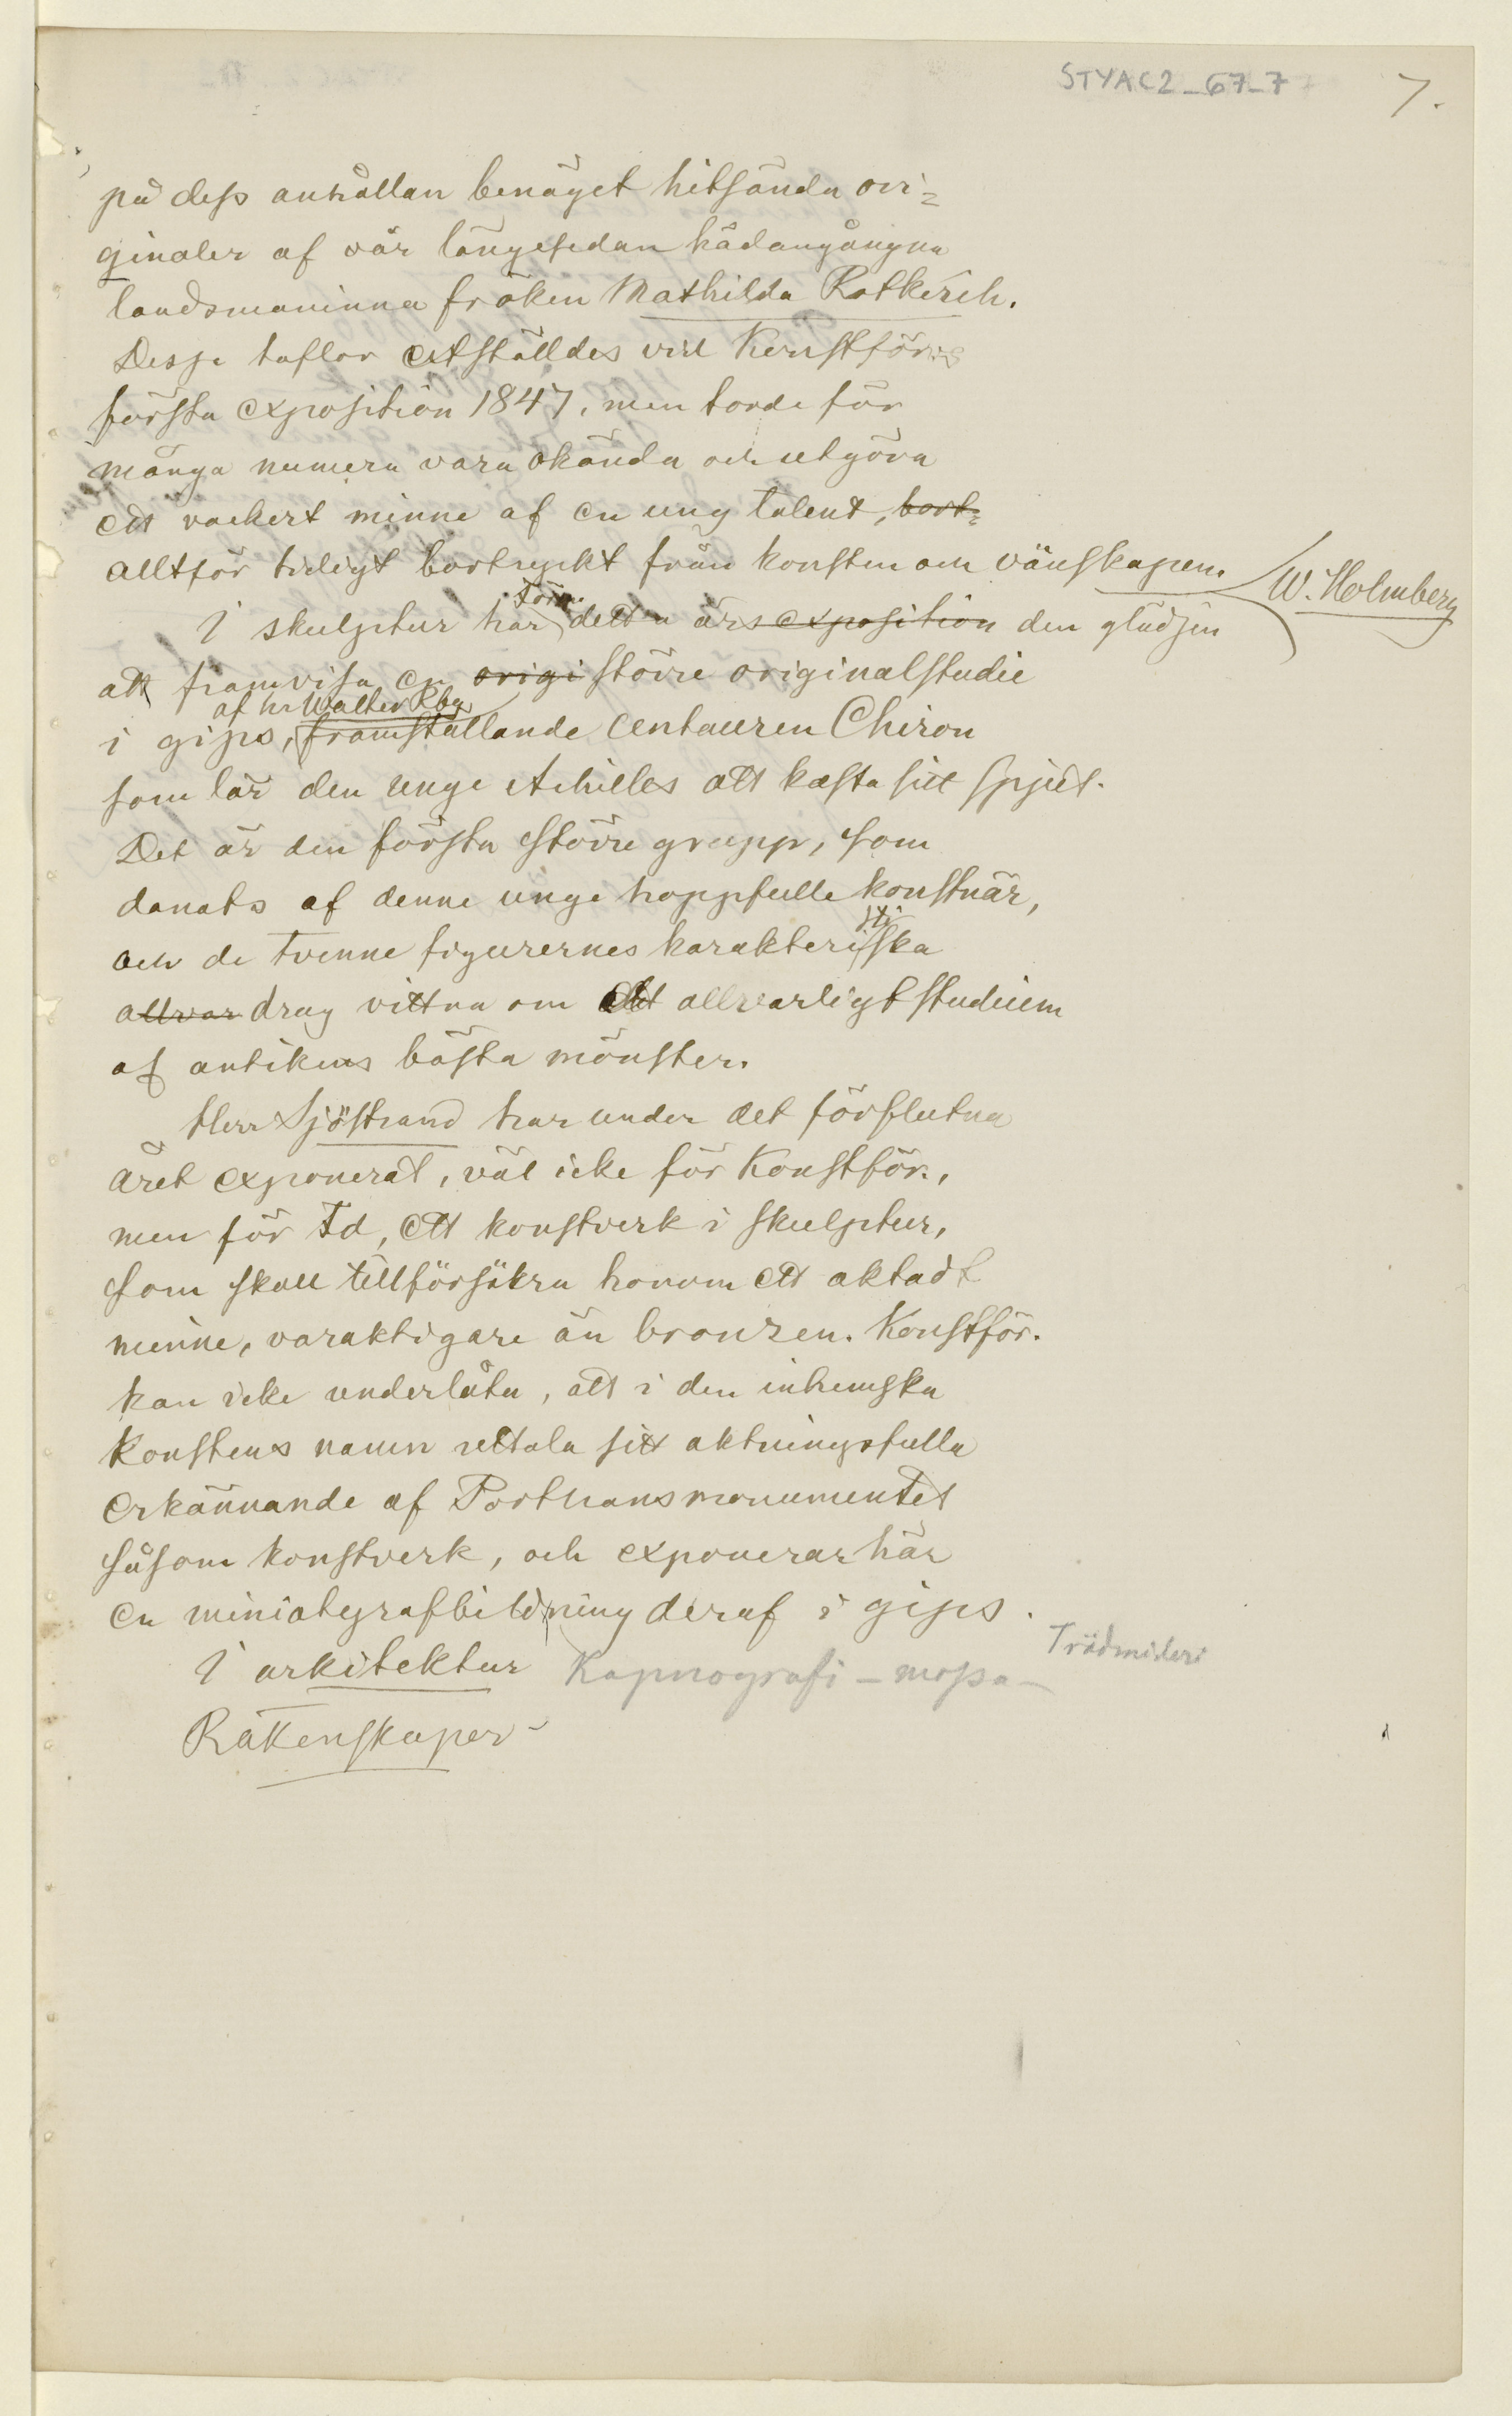 STYAC2_67_7 7.
på dess anhållan benäget hitsända ori-
ginaler af vår längesedan hädangångna
landsmaninna fröken Mathilda Rotkirch.
Dessa taflor utställdes vid Konstför:s
första exposition 1847, men torde för
många numera vara okända och utgöra
ett vackert minne af en ung talent, bort-
alltför tidigt bortryckt från konsten och vänskapen. W. Holmberg
Fören.
I skulptur har detta års exposition den glädjen
att framvisa en origi större originalstudie
af hr Walter Rbg
i gips, framställande Centauren Chiron
som lär den unge Achilles att kasta sitt spjut.
Det är den första större grupp, som
danats af denne unge hoppfulle konstnär,
sti
och de tvenne figurernes karakteriska
allvar drag vittna om ett allvarligt studium
af antikens bästa mönster.
Herr Sjöstrand har under det förflutna
året exponerat, väl icke för Konstför.,
men för Fd, ett konstverk i skulptur,
som skall tillförsäkra honom ett aktadt
minne, varaktigare än bronzen. Konstför.
kan icke underlåta, att i den inhemska
konstens namn uttala sitt aktningsfulla
erkännande af Porthansmonumentet
såsom konstverk, och exponerar här
en miniatyrafbildning deraf i gips.
I arkitektur Kapnografi - mossa - Trädsnideri
Räkenskaper -